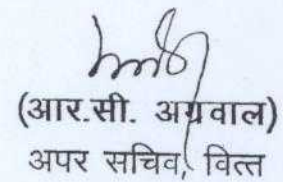 (आर.सी. अग्रवाल)
अपर सचिव, वित्त